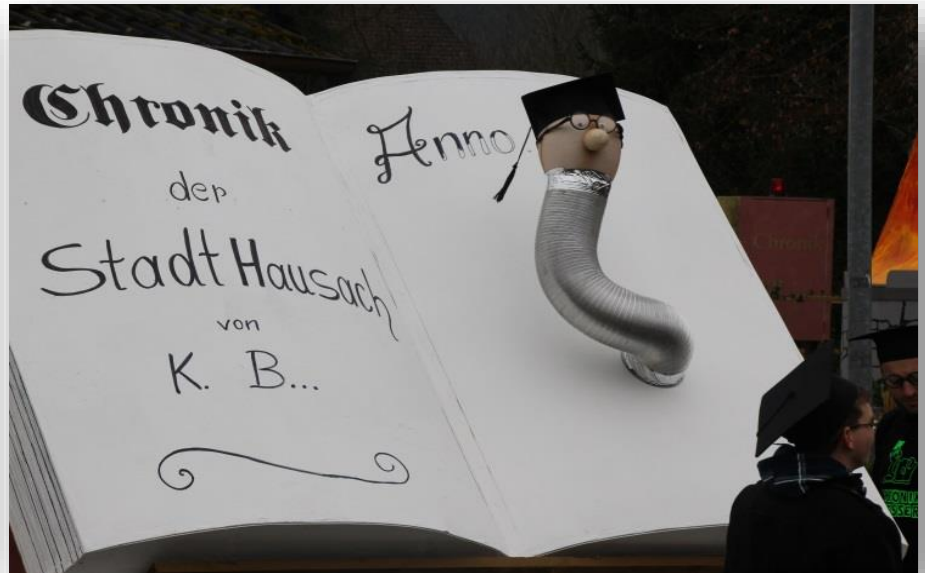 Chronik
der
Stadt Hausach
von
K. B...
Anno
Chronik